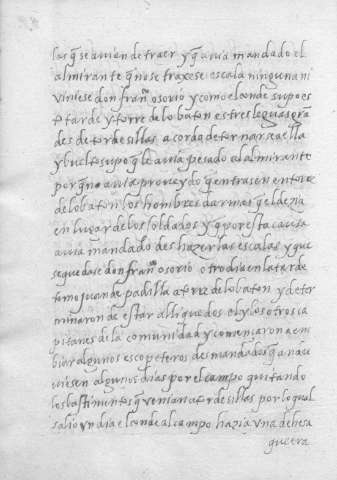 las q̃ se avien de traer y q̃ avia mandado el
almirante q̃ no se traxese escala ninguna ni
viniese don fran^co osorio y como el conde supo es
to tarde y torre de lobaton es tres leguas gran
des de tordesillas acordo de tornarse a ella
y buelto supo q̃ le avia pesado al almirante
por q̃ no avia proveydo q̃ entrasen en torre
de lobaton los hombres darmas q̃ el dezia
en lugar de los soldados y q̃ por esta causa
avia mandado deshazer las escalas y que
se quedase don fran^co osorio otro dia en la tarde
tomo juan de padilla a torre de lobaton y deter
minaron de estar alli quedos el y los otros ca
pitanes de la comunidad y començaron a em
biar algunos escopeteros desmandados q̃ andu
viesen algunos dias por el campo quitando
los bastimentos q̃ venian a tordesillas por lo qual
salio un dia el conde al campo hazia una dehesa